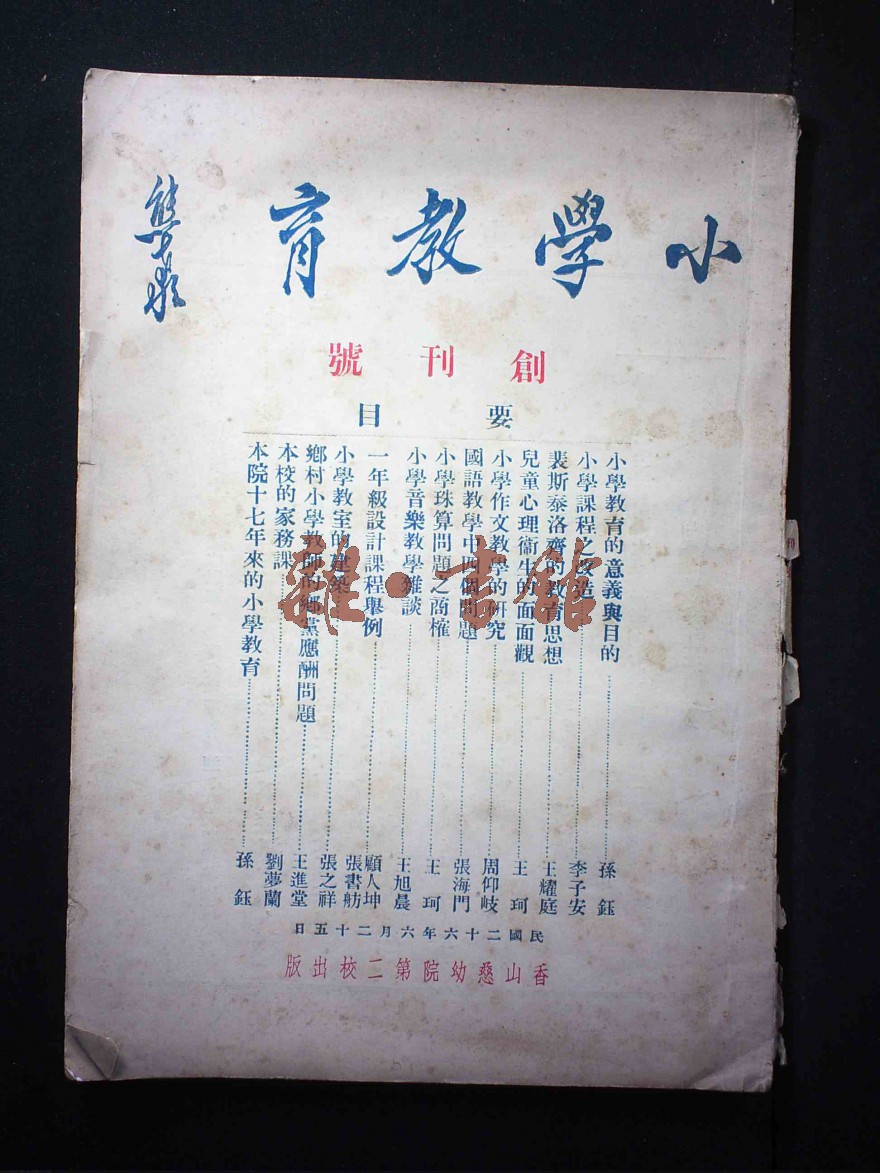 小學教育
創刊號
要目
小學教育的意義與目的⋯⋯孫鈺
小學課程之改造⋯⋯李子安
裴斯泰洛齊的教育思想⋯⋯王耀庭
兒童心理衞生的面面觀⋯⋯王珂
小學作文教學的研究⋯⋯周仰岐
國語教學中四個問題⋯⋯張海門
小學珠算問題之商榷⋯⋯王珂
小學音樂教學雜談⋯⋯王旭晨
一年級設計課程舉例⋯⋯顧人坤 張書舫
小學教室的建築⋯⋯張之祥
鄉村小學教師的鄉黨應酬問題⋯⋯王進堂
本校的家務課⋯⋯劉夢蘭
本院十七年來的小學教育⋯⋯孫鈺
民國二十六年六月二十五日
香山慈幼院第二校出版
雜·書館